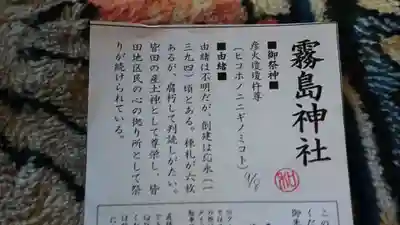 霧島神社
■御祭神■
彦火瓊瓊杵尊
(ヒコホノニニギノミコト)
9/8
■由緒■
由緒は不明だが、創建は応永(一
三九四)頃とある。棟札が六枚
あるが、腐朽して判読しがたい。
皆田の産土神として尊崇し、皆
田地区民の心の拠り所として祭
りが続けられている。